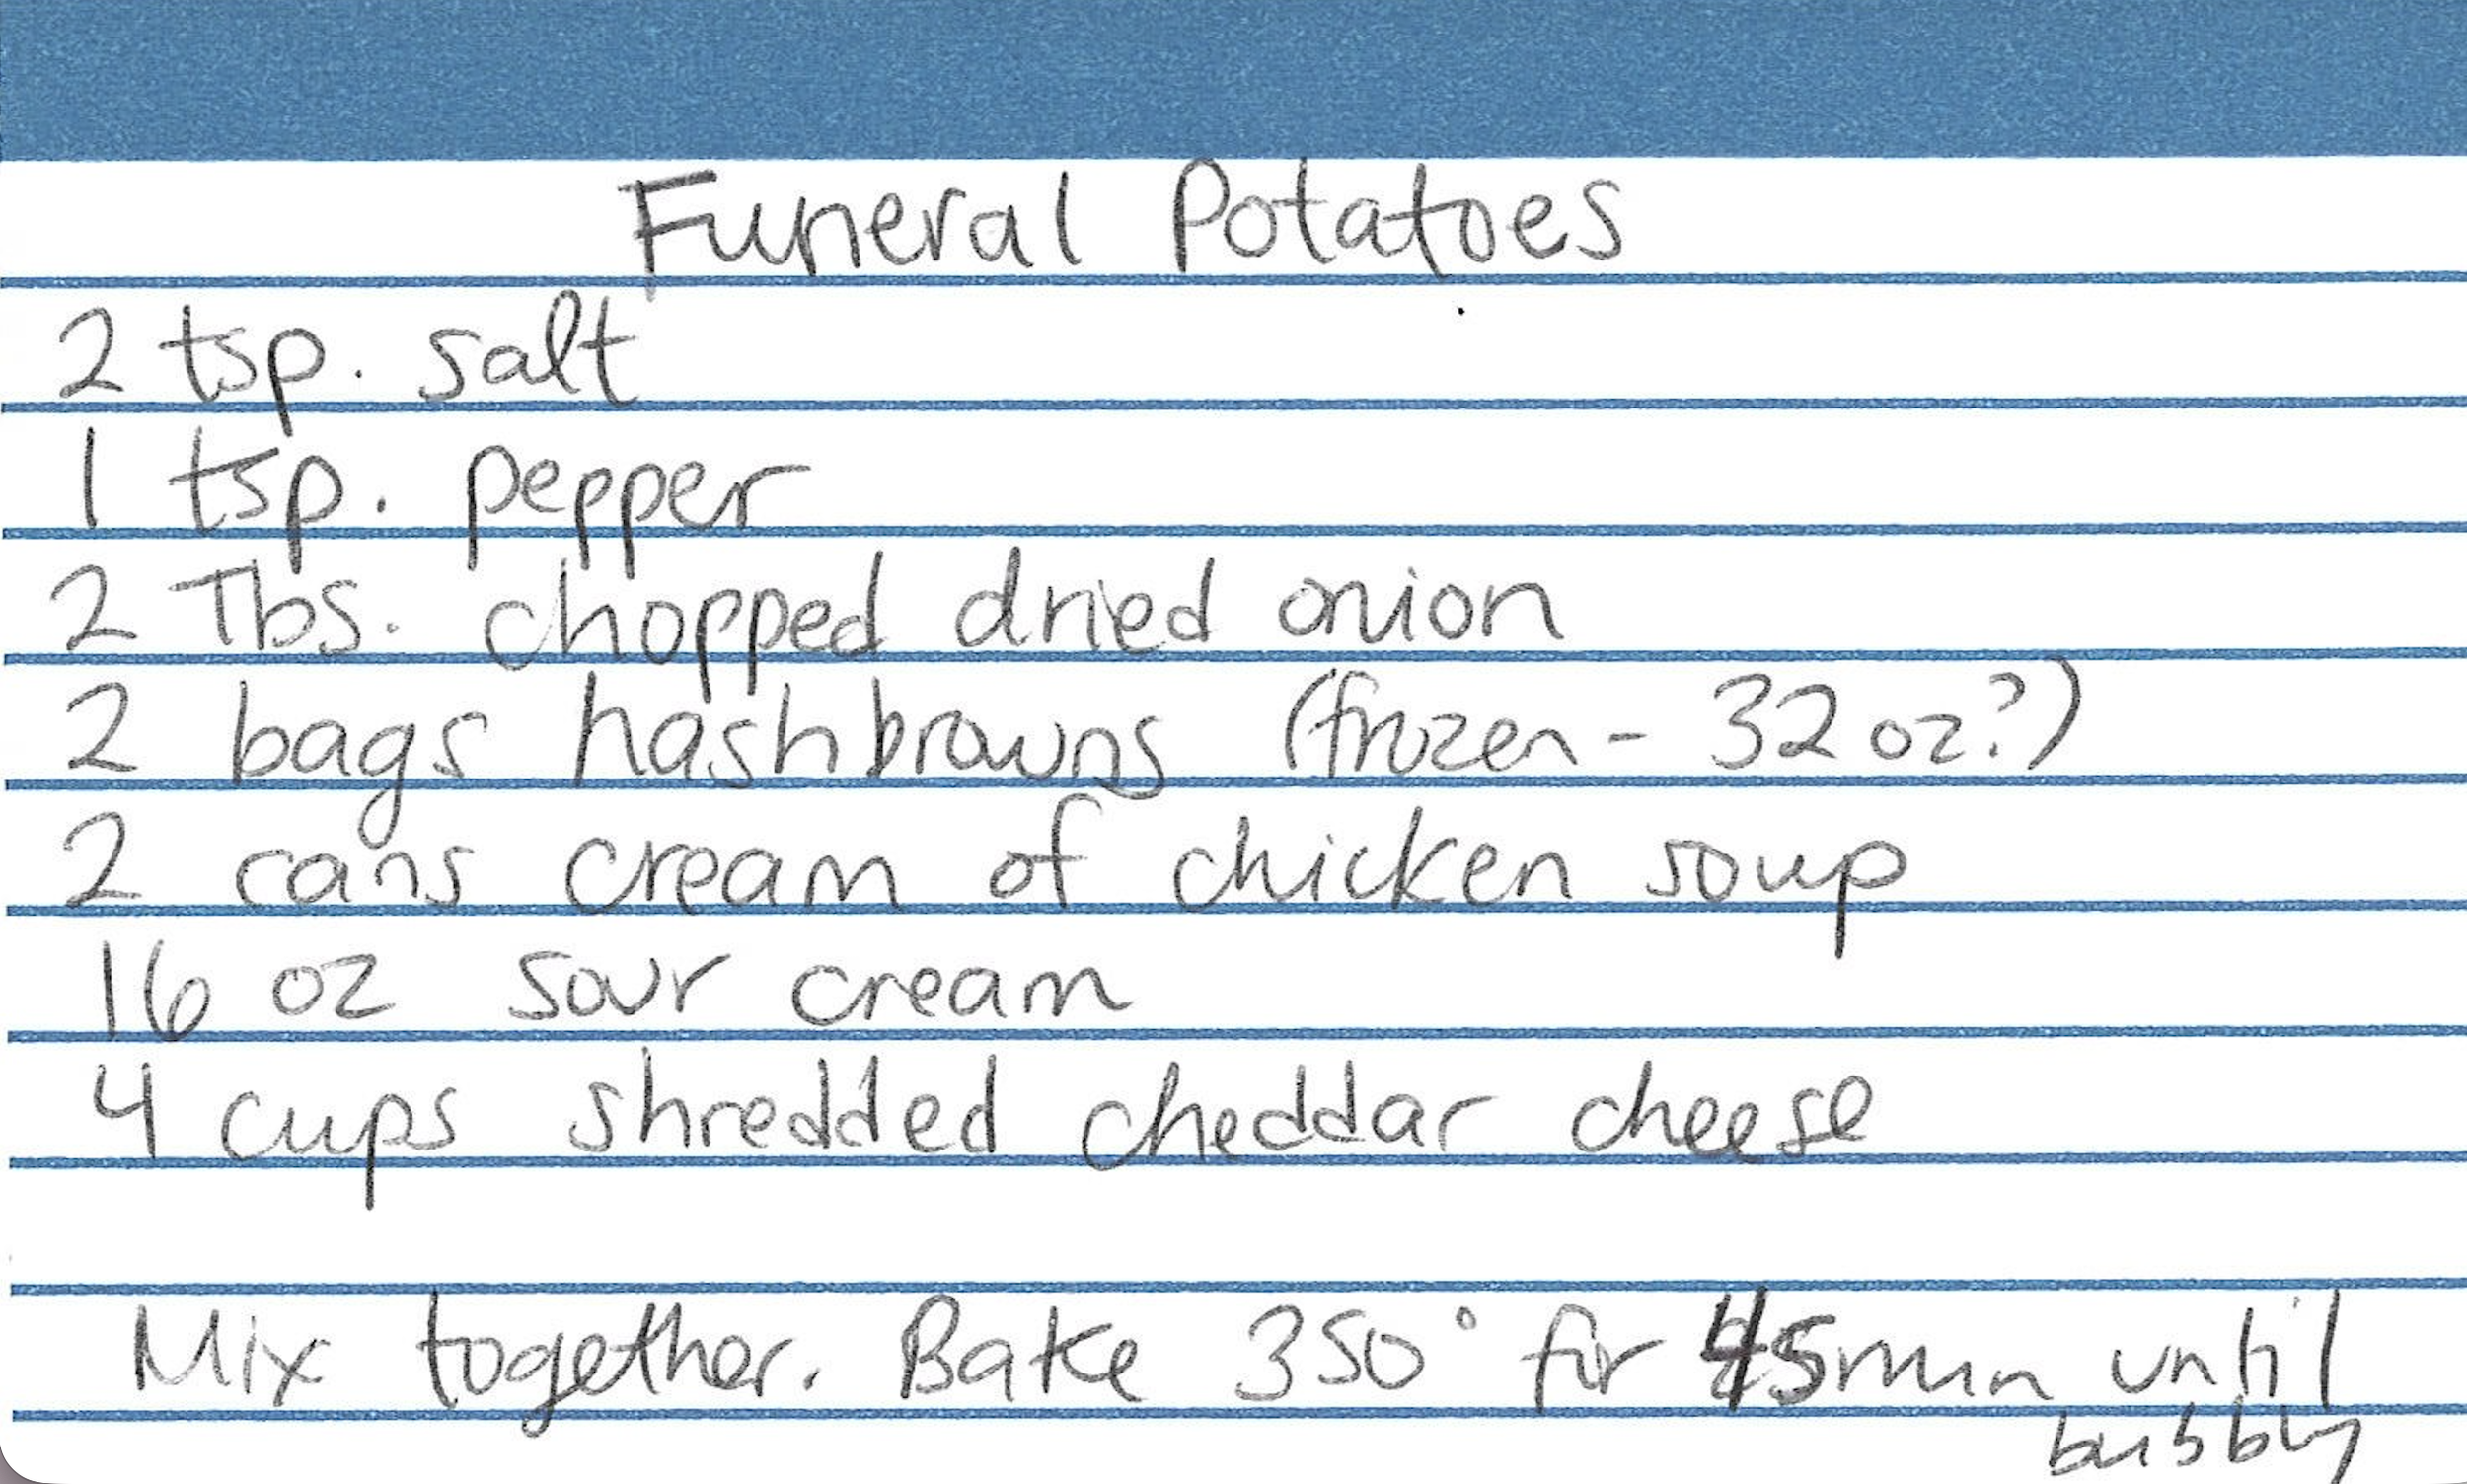 Funeral Potatoes
2 tsp. salt
1 tsp. pepper
2 Tbs. chopped dried onion
2 bags hashbrowns (frozen - 32 oz?)
2 cans cream of chicken soup
16 oz sour cream
4 cups shredded cheddar cheese
Mix together. Bake 350° for 45 min until
bubbly